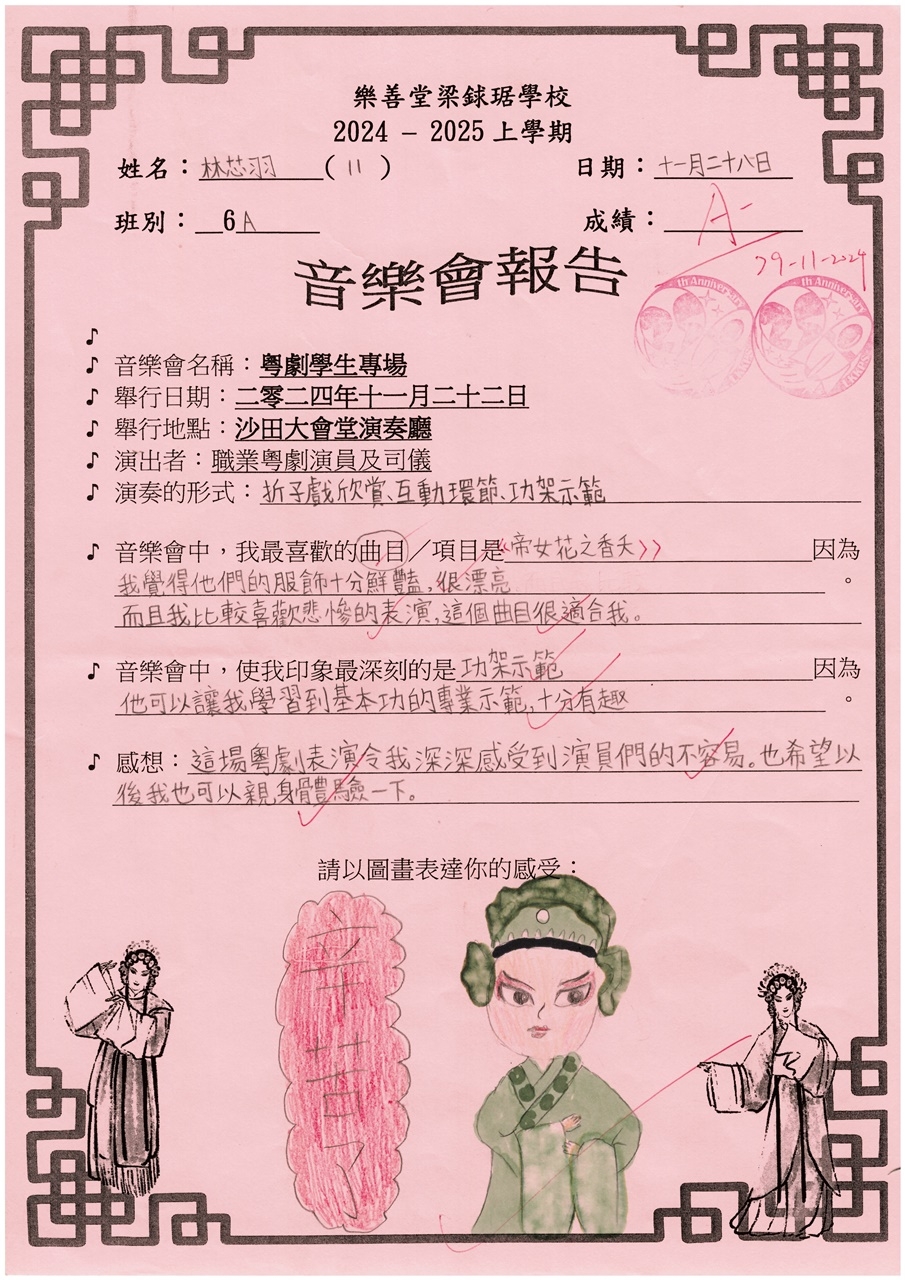 樂善堂梁銶琚學校
2024 – 2025 上學期
姓名：林芯羽（11） 日期：十一月二十八日
班別：6A 成績：A-
29-11-2024
音樂會報告
th Anniversary th Anniversary
♪
♪ 音樂會名稱：粵劇學生專場
♪ 舉行日期：二零二四年十一月二十二日
♪ 舉行地點：沙田大會堂演奏廳
♪ 演出者：職業粵劇演員及司儀
♪ 演奏的形式：折子戲欣賞、互動環節、功架示範
♪ 音樂會中，我最喜歡的曲目／項目是《帝女花之香夭》因為
我覺得他們的服飾十分鮮豔，很漂亮。
而且我比較喜歡悲慘的表演，這個曲目很適合我。
♪ 音樂會中，使我印象最深刻的是功架示範因為
他可以讓我學習到基本功的專業示範，十分有趣。
♪ 感想：這場粵劇表演令我深深感受到演員們的不容易。也希望以
後我也可以親身體驗一下。
請以圖畫表達你的感受：
辛苦了